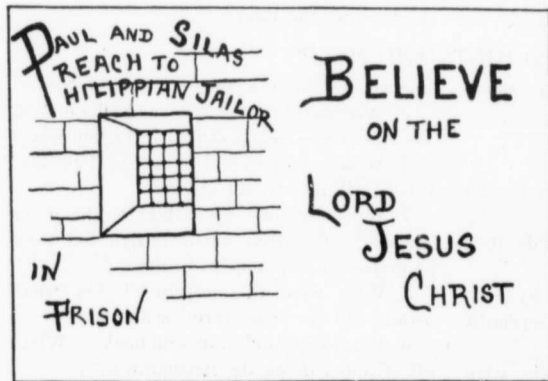 PAUL AND SILAS
PREACH TO
PHILIPPIAN JAILOR
IN
PRISON
BELIEVE
ON THE
LORD
JESUS
CHRIST